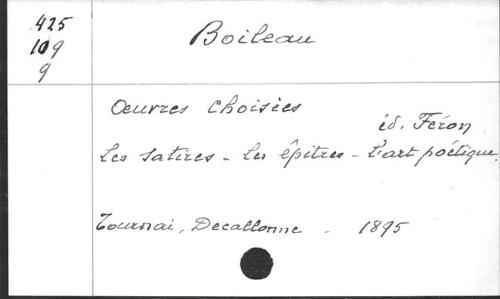 425
109
9
Boileau
Oeuvres Choisies
éd. Féron
Les Satires - Les Épîtres - L'art poétique.
Tournai, Decallonne - 1895